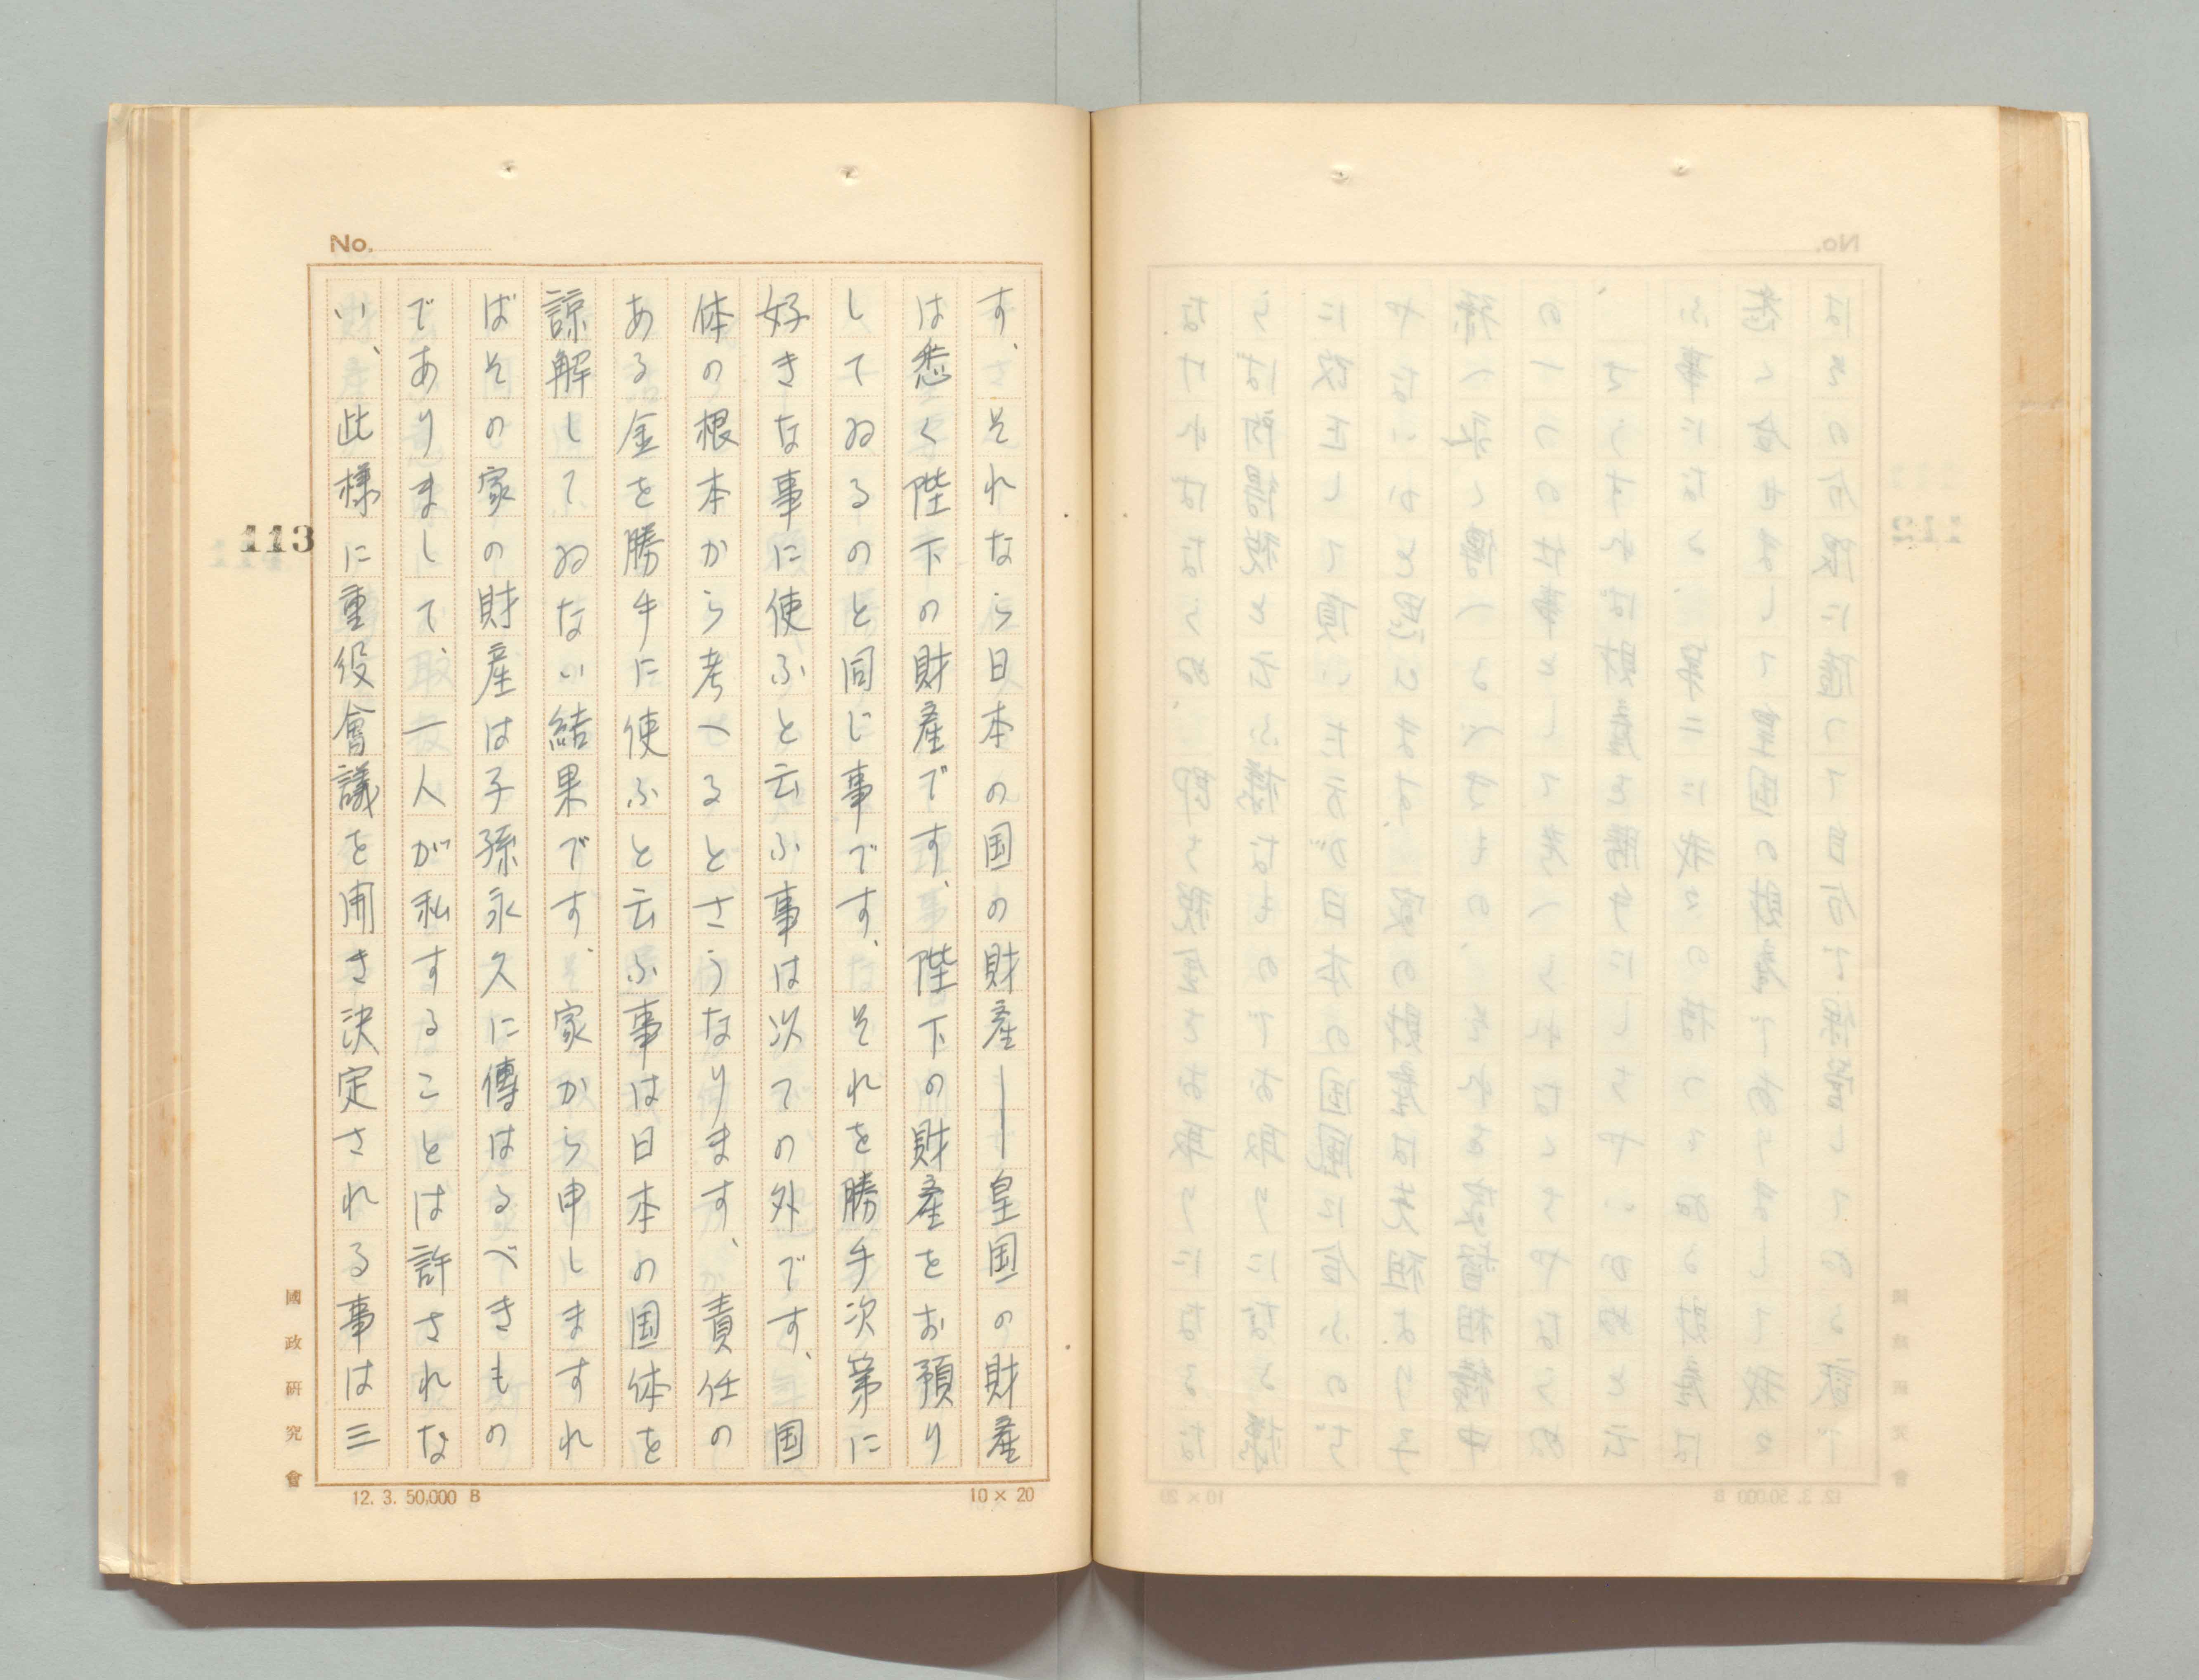 No.
す、それなら日本の国の財産――皇国の財産
は悉く陛下の財産です、陛下の財産をお預り
してゐるのと同じ事です、それを勝手次第に
好きな事に使ふと云ふ事は以ての外です、国
体の根本から考へるとさうなります、責任の
ある金を勝手に使ふと云ふ事は日本の国体を
諒解してゐない結果です、家から申しますれ
ばその家の財産は子孫永久に傳はるべきもの
でありまして、一人が私することは許されな
い、此様に重役會議を開き決定される事は三
113
國政研究會
12. 3. 50,000 B
10 × 20